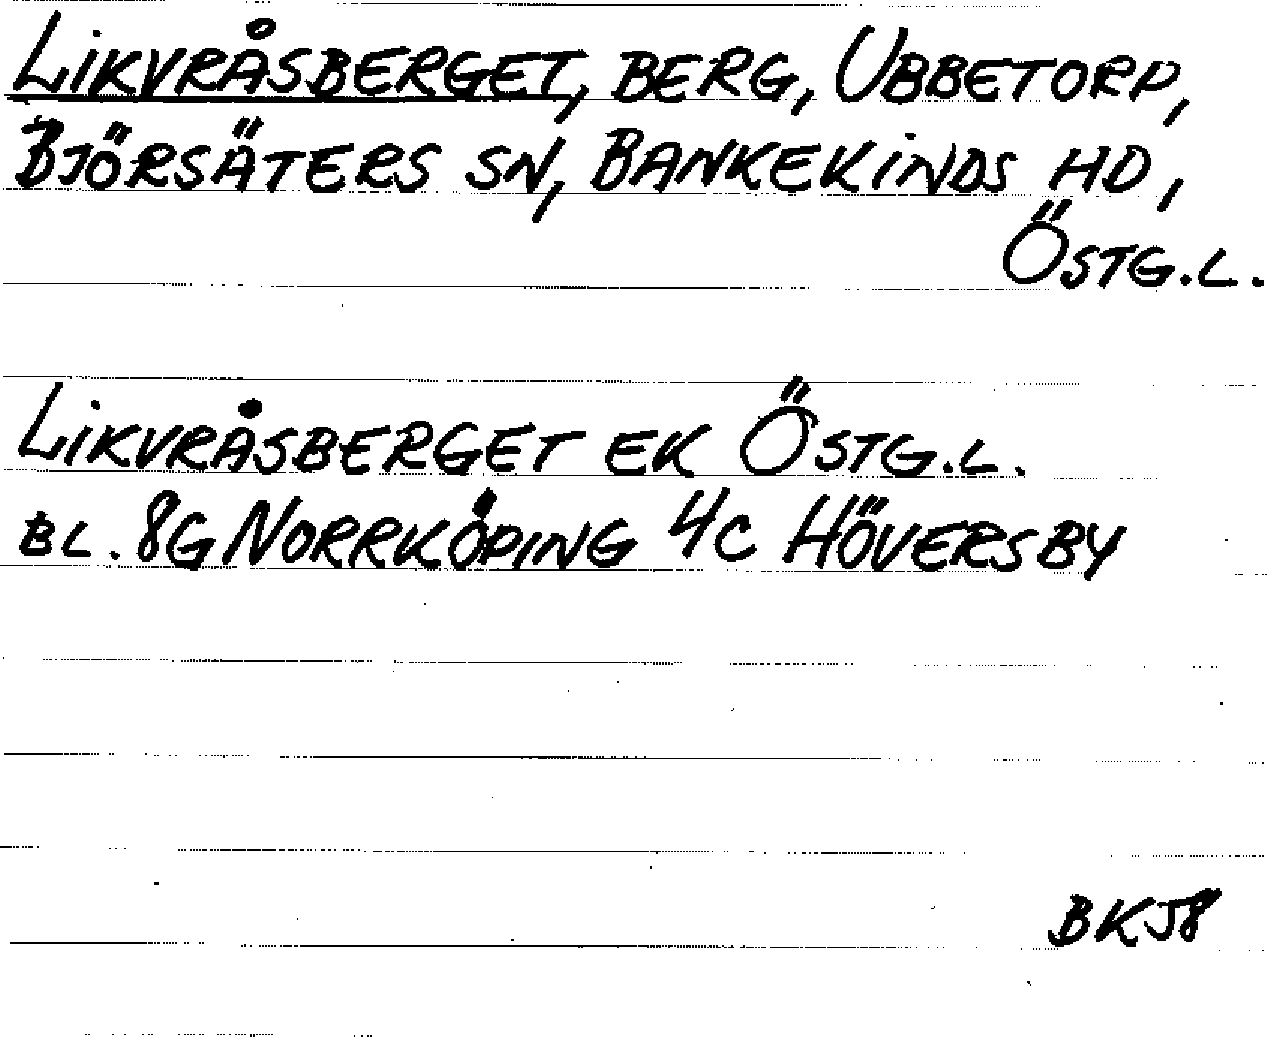 LIKVRÅSBERGET, BERG, UBBETORP,
BJÖRSÄTERS SN, BANKEKINDS HD,
ÖSTG.L.
LIKVRÅSBERGET EK ÖSTG.L.
BL. 8G NORRKÖPING 4C HÖVERSBY
BKJ8